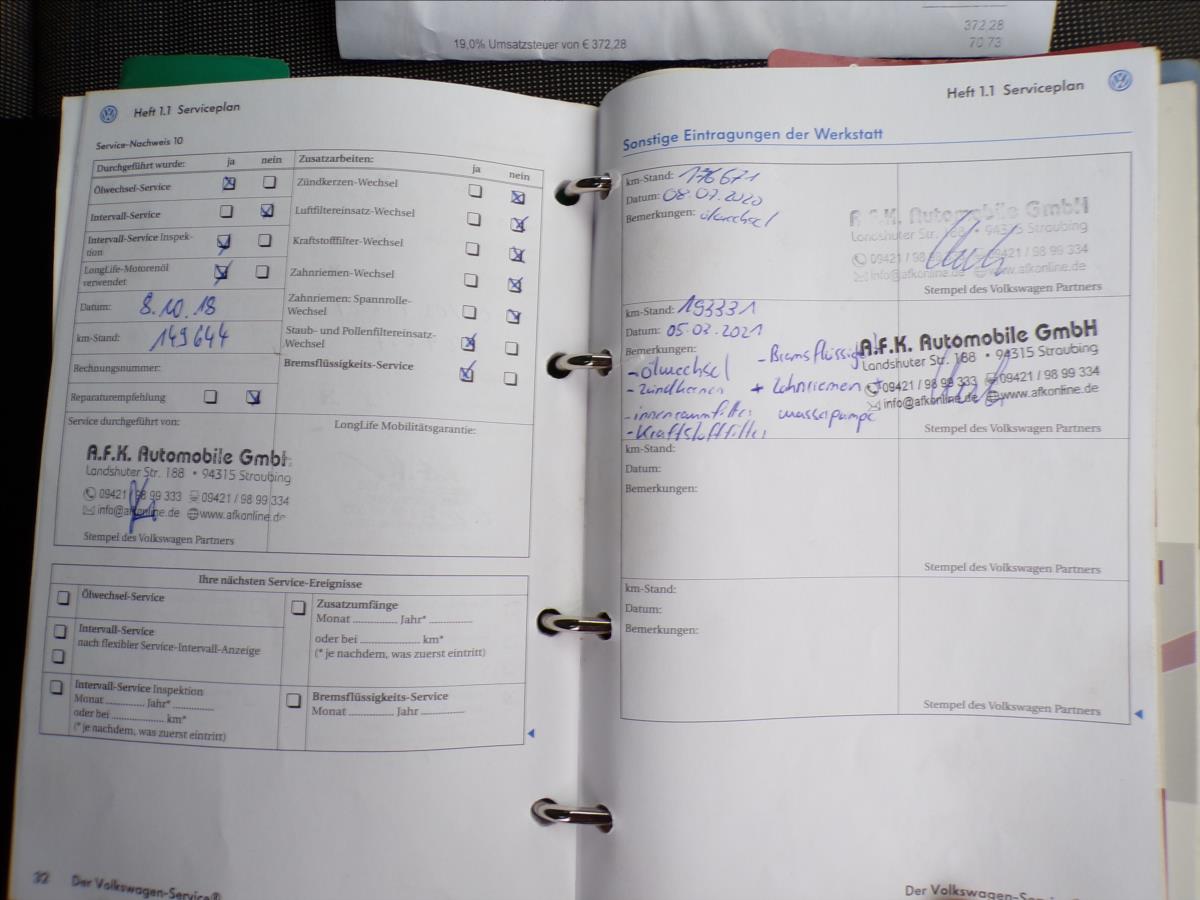 372,28
19,0% Umsatzsteuer von € 372,28
70 73
Heft 1.1 Serviceplan
Service-Nachweis 10
Durchgeführt wurde: ja nein
Ölwechsel-Service
Intervall-Service
Intervall-Service Inspek-
tion
LongLife-Motorenöl
verwendet
Datum: 8.10.18
km-Stand: 149644
Rechnungsnummer:
Reparaturempfehlung
Zusatzarbeiten: ja nein
Zündkerzen-Wechsel
Luftfiltereinsatz-Wechsel
Kraftstofffilter-Wechsel
Zahnriemen-Wechsel
Zahnriemen: Spannrolle-
Wechsel
Staub- und Pollenfiltereinsatz-
Wechsel
Bremsflüssigkeits-Service
Service durchgeführt von:
A.F.K. Automobile GmbH
Landshuter Str. 188 • 94315 Straubing
09421 / 98 99 333 09421 / 98 99 334
info@afkonline.de www.afkonline.de
Stempel des Volkswagen Partners
LongLife Mobilitätsgarantie:
Ihre nächsten Service-Ereignisse
Ölwechsel-Service
Intervall-Service
nach flexibler Service-Intervall-Anzeige
Intervall-Service Inspektion
Monat ............ Jahr* ............
oder bei ............ km*
(* je nachdem, was zuerst eintritt)
Zusatzumfänge
Monat ............ Jahr* ............
oder bei ............ km*
(* je nachdem, was zuerst eintritt)
Bremsflüssigkeits-Service
Monat ............ Jahr ............
32 Der Volkswagen-Service®
Heft 1.1 Serviceplan
Sonstige Eintragungen der Werkstatt
km-Stand: 176671
Datum: 08.07.2020
Bemerkungen: ölwechsel
A.F.K. Automobile GmbH
Landshuter Str. 188 • 94315 Straubing
09421 / 98 99 333 09421 / 98 99 334
info@afkonline.de www.afkonline.de
Stempel des Volkswagen Partners
km-Stand: 193331
Datum: 05.02.2021
Bemerkungen: - Bremsflüssig
- ölwechsel
- zündkerzen + Zahnriemen +
- innenraumfilter wasserpumpe
- Kraftstoffilter
A.F.K. Automobile GmbH
Landshuter Str. 188 • 94315 Straubing
09421 / 98 99 333 09421 / 98 99 334
info@afkonline.de www.afkonline.de
Stempel des Volkswagen Partners
km-Stand:
Datum:
Bemerkungen:
Stempel des Volkswagen Partners
km-Stand:
Datum:
Bemerkungen:
Stempel des Volkswagen Partners
Der Volkswagen-